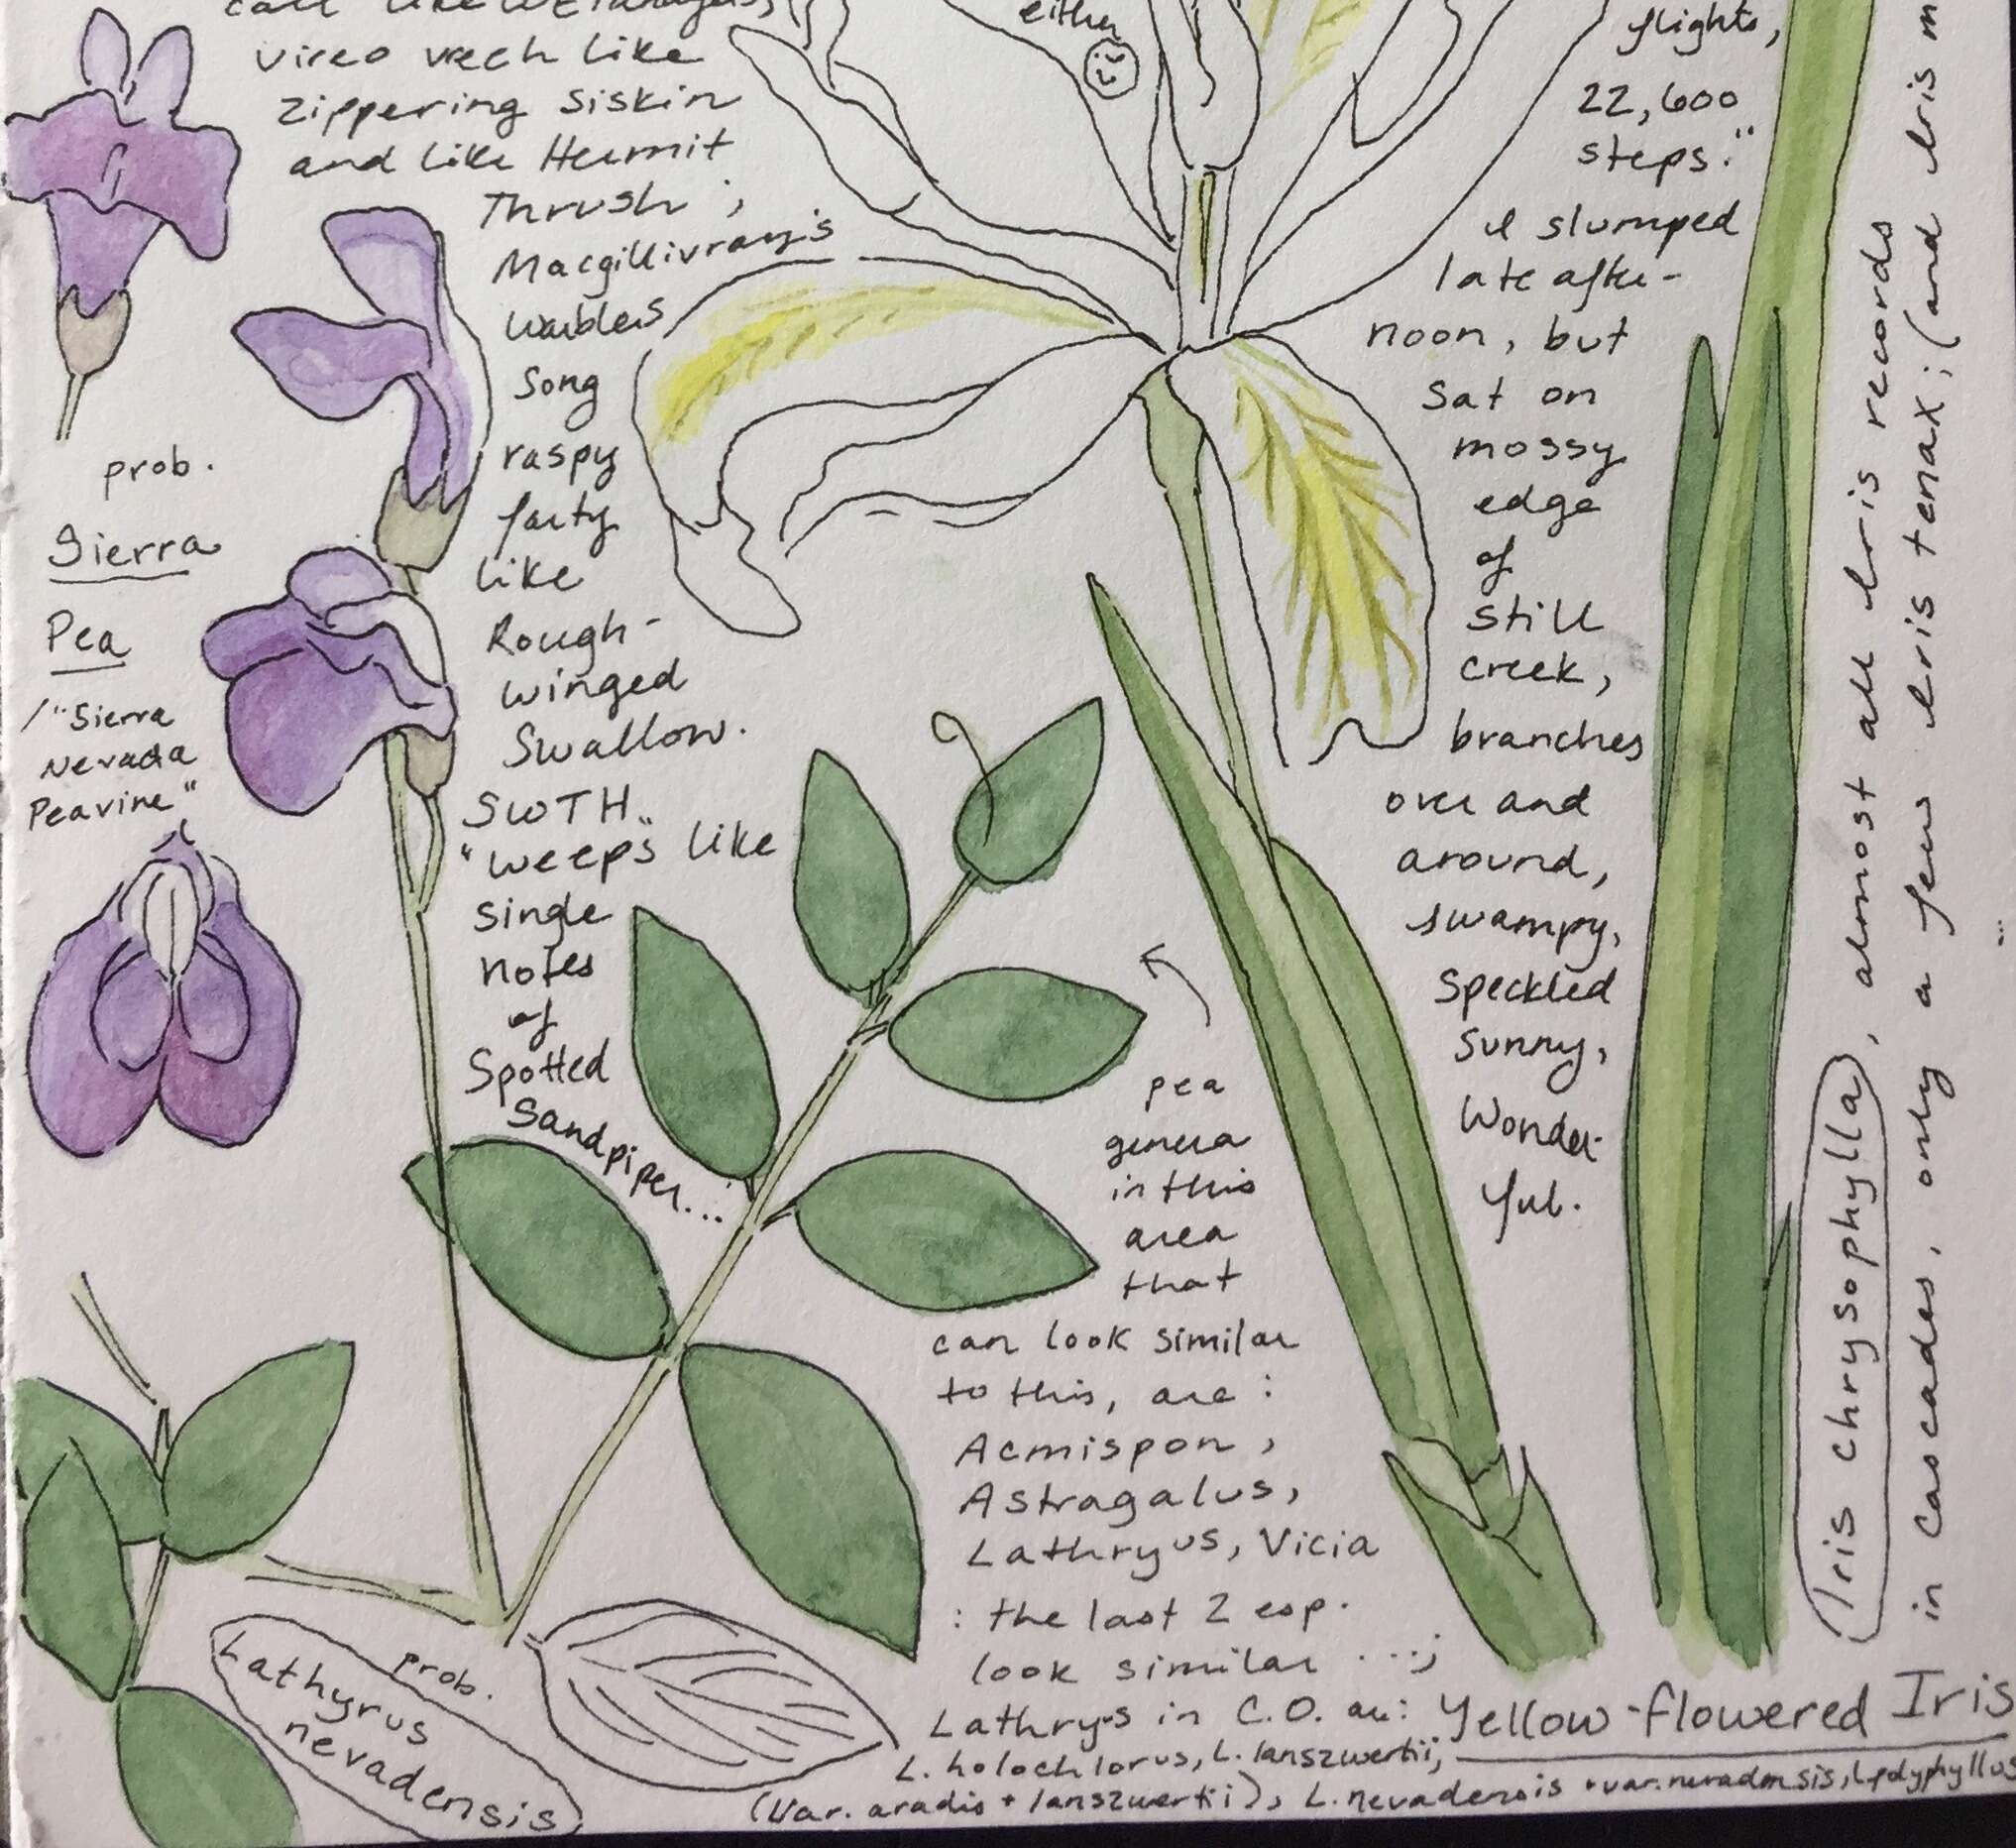 call like
vireo vrech like
zippering siskin
and like Hermit
Thrush ;
Macgillivray's
Warblers
song
raspy
farty
like
Rough-
winged
Swallow.
SWTH
"weeps" like
single
notes
of
Spotted
Sandpiper...
prob.
Sierra
Pea
/"Sierra
Nevada
Peavine"
either
flights,
22,600
steps."
I slumped
late after-
noon, but
sat on
mossy
edge
of
still
creek,
branches
over and
around,
swampy,
speckled
sunny,
Wonder-
ful.
pea
genera
in this
area
that
can look similar
to this, are :
Acmispon,
Astragalus,
Lathryus, Vicia
: the last 2 esp.
look similar ...;
Lathrys in C.O. are:
L. holochlorus, L. lanszwertii,
(var. aradis + lanszwertii), L. nevadensis + var. nevadensis, L. polyphyllus
prob.
Lathyrus
nevadensis
Yellow-flowered Iris
Iris chrysophylla, almost all Iris records
in Cascades, only a few Iris tenax; (and Iris m